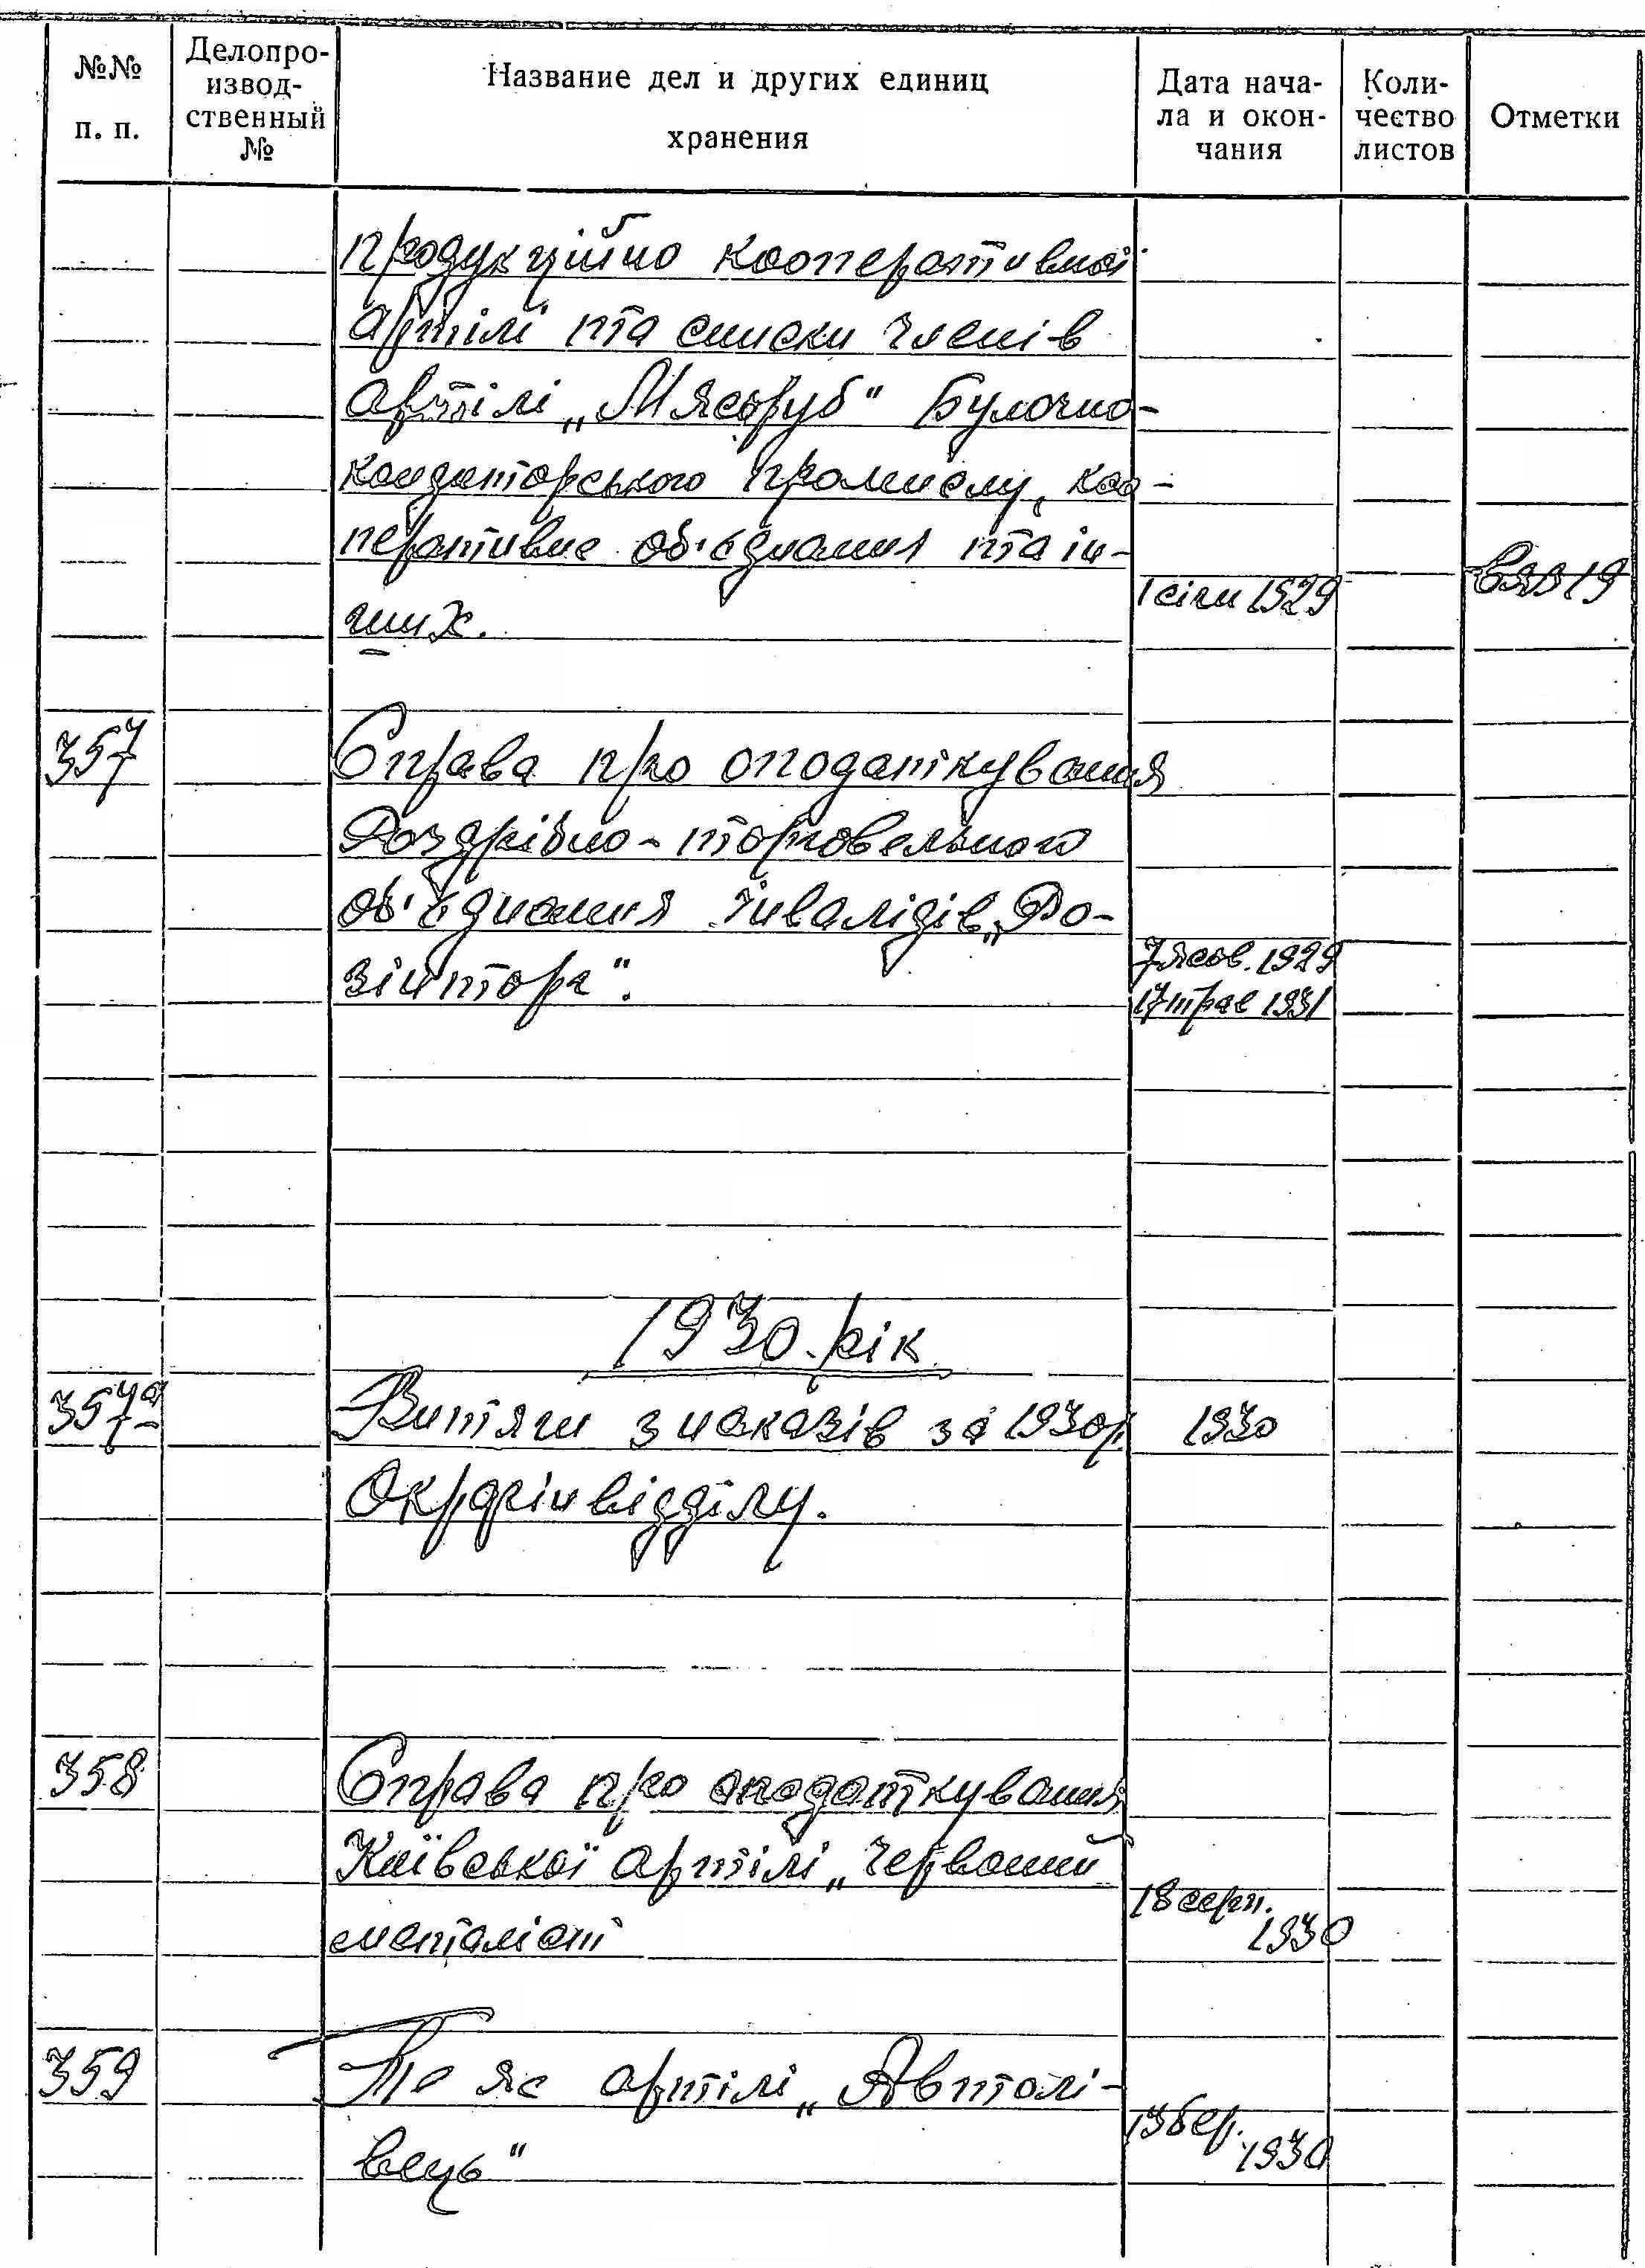 №№ п. п.
Делопро-
извод-
ственный
№
Название дел и других единиц
хранения
Дата нача-
ла и окон-
чания
Коли-
чество
листов
Отметки
продукційно кооперативної
артілі та списки членів
артілі „Мясоруб" Булочно-
кондиторського промислу, коо-
перативне об'єднання та ін-
ших.
1 січн 1929
357
Справа про оподаткування
Роздрібно-торговельного
об'єднання інвалідів „Ро-
зінторг".
7 жов. 1929
17 трав 1931
1930 рік
357а
Витяги з наказів за 1930р.
1930
Окрфінвідділу.
358
Справа про оподаткування
Київської артілі „Червоний
металіст
18 серп.
1930
359
Те же артілі „Автолі-
вець"
13 бер.
1930